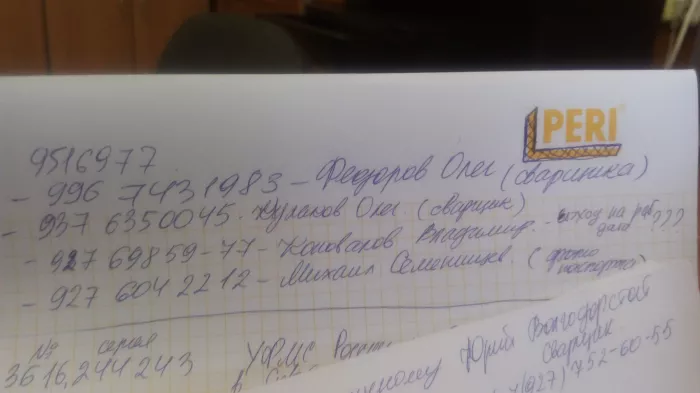 PERI
9516977
- 996 7431983 - Федоров Олег (сварщика)
- 937 6350045. Кулаков Олег. (сварщик)
- 927 69859-77 - Коновалов Владимир. - выход на раб ???
- 927 604 22 12 - Михаил (фото паспорта)
№ серия
3616, 244243 УФМС
Юрий Волгодорстой
Сварщик
(927) 752-60-55